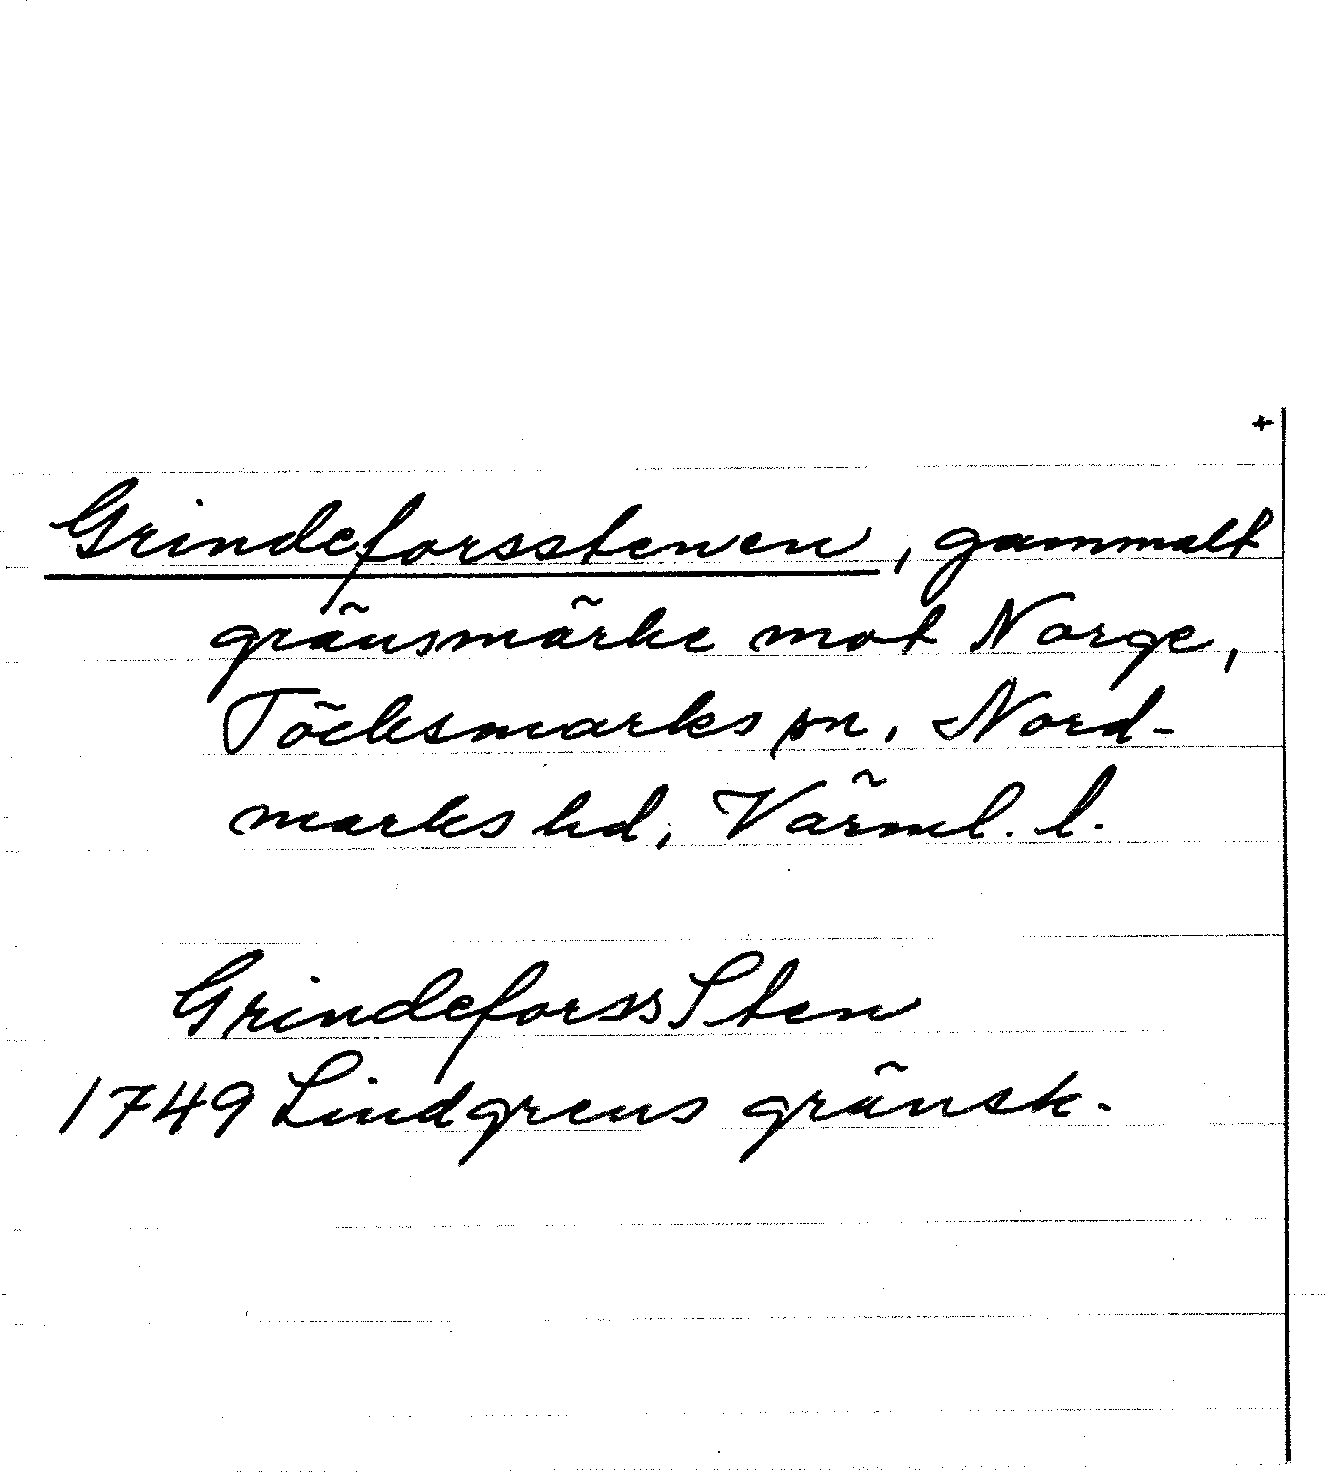 +
Grindeforsstenen, gammalt
gränsmärke mot Norge,
Töcksmarks sn, Nord-
marks hd, Värml. l.
Grindeforss Sten
1749 Lindgrens gränsk.